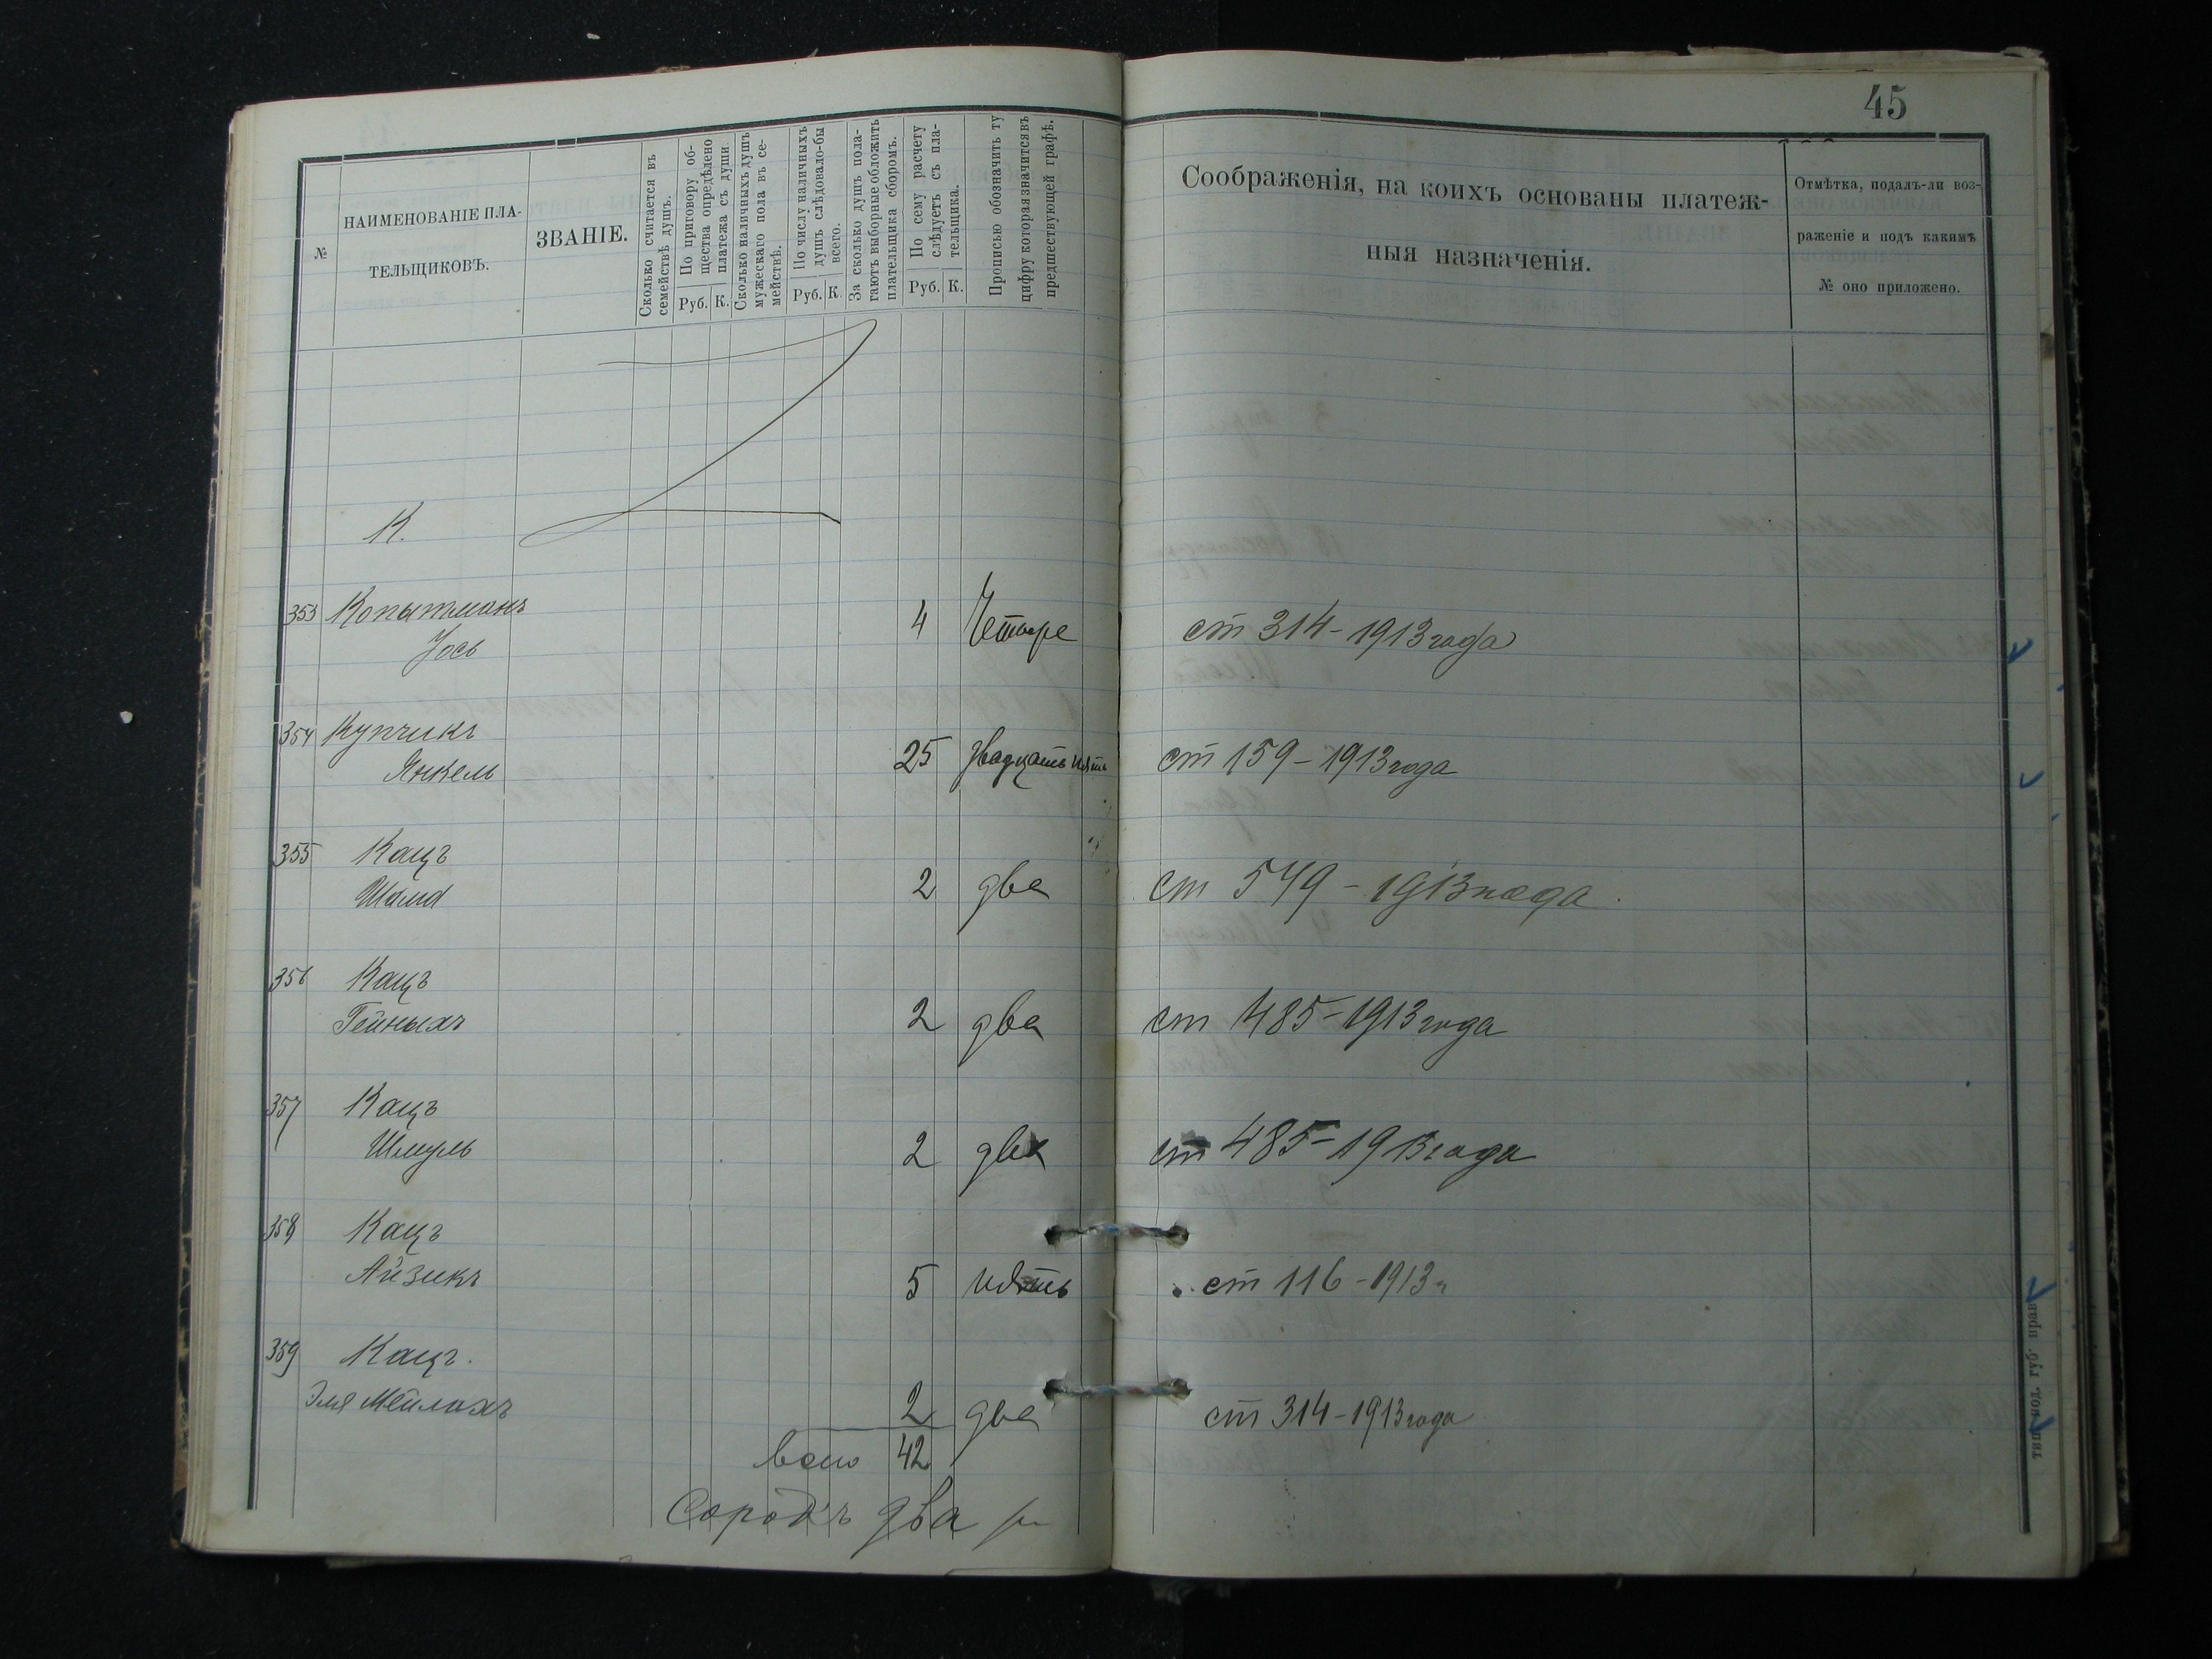 45
№
НАИМЕНОВАНІЕ ПЛА-
ТЕЛЬЩИКОВЪ.
ЗВАНІЕ.
Сколько считается въ
семействѣ душъ.
По приговору об-
щества опредѣлено
платежа съ души
Руб. К.
Сколько наличныхъ душъ
мужескаго пола въ се-
мействѣ.
По числу наличныхъ
душъ слѣдовало-бы
всего.
Руб. К.
За сколько душъ пола-
гаютъ выборные обложить
плательщика сборомъ.
По сему расчету
слѣдуетъ съ пла-
тельщика.
Руб. К.
Прописью обозначить ту
цифру которая значится въ
предшествующей графѣ.
Соображенія, на коихъ основаны платеж-
ныя назначенія.
Отмѣтка, подалъ-ли воз-
раженіе и подъ какимъ
№ оно приложено.
К.
353 Копытманъ
Іось 4 Четыре ст 314-1913 года
354 Купчикъ
Янкель 25 двадцать пять ст 159-1913 года
355 Кацъ
2 два ст 549-1913 года
356 Кацъ
Гейныхъ 2 два ст 485-1913 года
357 Кацъ
Шмуль 2 два ст 485-1913 года
358 Кацъ
Айзикъ 5 пять ст 116-1913 г
359 Кацъ.
Эля Мейлахъ 2 два ст 314-1913 года
всего 42
Сорокъ два р
тип. под. губ. прав.